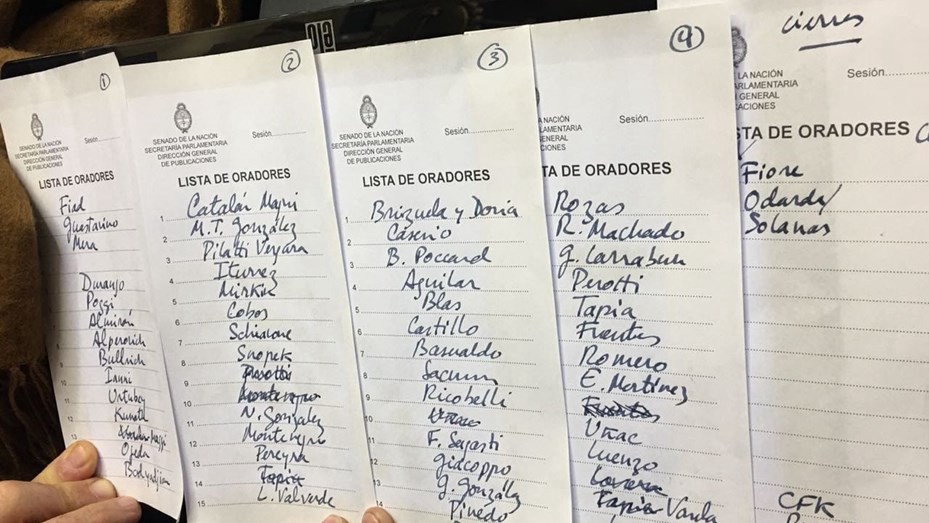 ①
SENADO DE LA NACIÓN
SECRETARÍA PARLAMENTARIA
DIRECCIÓN GENERAL
DE PUBLICACIONES
LISTA DE ORADORES
Fiad
Guastavino
Mera
Durango
Poggi
Almirón
Alperovich
Bullrich
Ianni
Urtubey
Kunath
Ojeda
Boyadjian
②
SENADO DE LA NACIÓN
SECRETARÍA PARLAMENTARIA
DIRECCIÓN GENERAL
DE PUBLICACIONES
Sesión
LISTA DE ORADORES
1 Catalán Magni
2 M.T. González
3 Pilatti Vergara
4 Iturrez
5 Mirkin
6 Cobos
7 Schiavone
8 Snopek
9 Perotti
10 Montenegro
11 N. Gonzalez
12 Montenegro
13 Pereyra
14 Tapia
15 L. Valverde
③
SENADO DE LA NACIÓN
SECRETARÍA PARLAMENTARIA
DIRECCIÓN GENERAL
DE PUBLICACIONES
Sesión
LISTA DE ORADORES
1 Brizuela y Doria
2 Caserio
3 B. Poccard
4 Aguilar
5 Blas
6 Castillo
7 Basualdo
8 Sacnun
9 Ricobelli
10 Uñac
11 F. Sagasti
12 Giacoppo
13 G. González
14 Pinedo
④
LAMENTARIA
GENERAL
CACIONES
Sesión
TA DE ORADORES
Rozas
R. Machado
G. Larraburu
Perotti
Tapia
Fuentes
Romero
E. Martínez
Fuentes
Uñac
Luenzo
Lovera
Tapia Varela
cierres
LA NACIÓN
ARLAMENTARIA
GENERAL
CACIONES
Sesión
STA DE ORADORES
Fiore
Odarda
Solanas
CFK